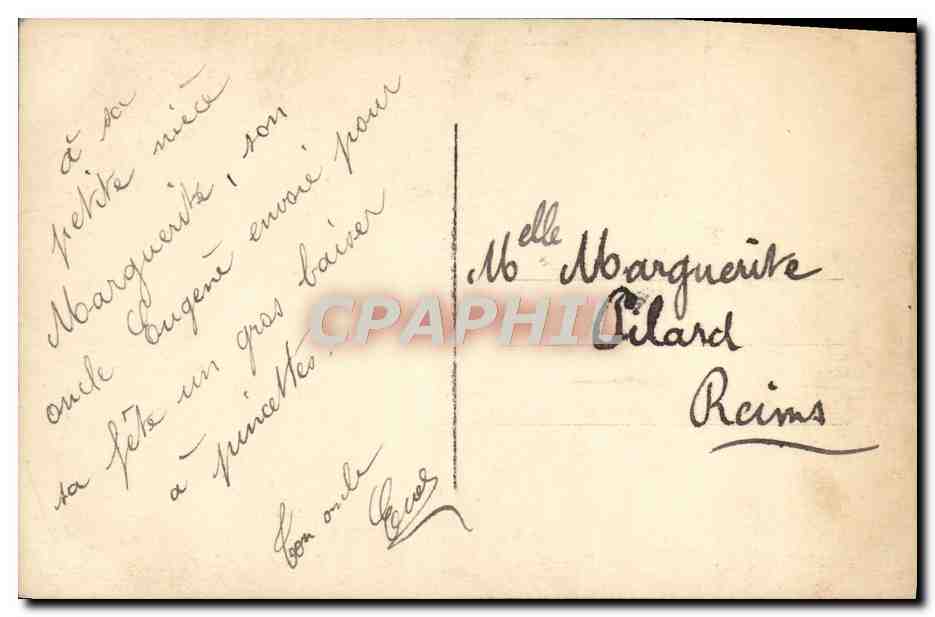 à sa
petite nièce
Marguerite, son
oncle Eugène envoie pour
sa fête un gros baiser
à pincettes.
Ton oncle
Melle Marguerite
Pilard
Reims
CPAPHIL